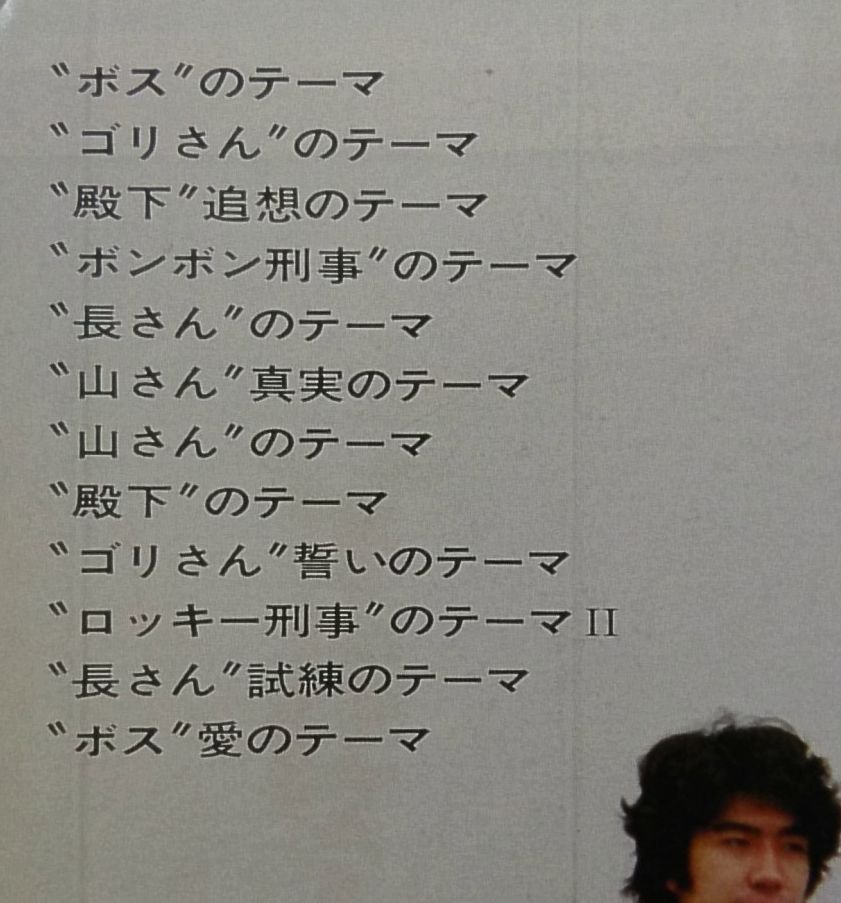 〝ボス〞のテーマ
〝ゴリさん〞のテーマ
〝殿下〞追想のテーマ
〝ボンボン刑事〞のテーマ
〝長さん〞のテーマ
〝山さん〞真実のテーマ
〝山さん〞のテーマ
〝殿下〞のテーマ
〝ゴリさん〞誓いのテーマ
〝ロッキー刑事〞のテーマII
〝長さん〞試練のテーマ
〝ボス〞愛のテーマ